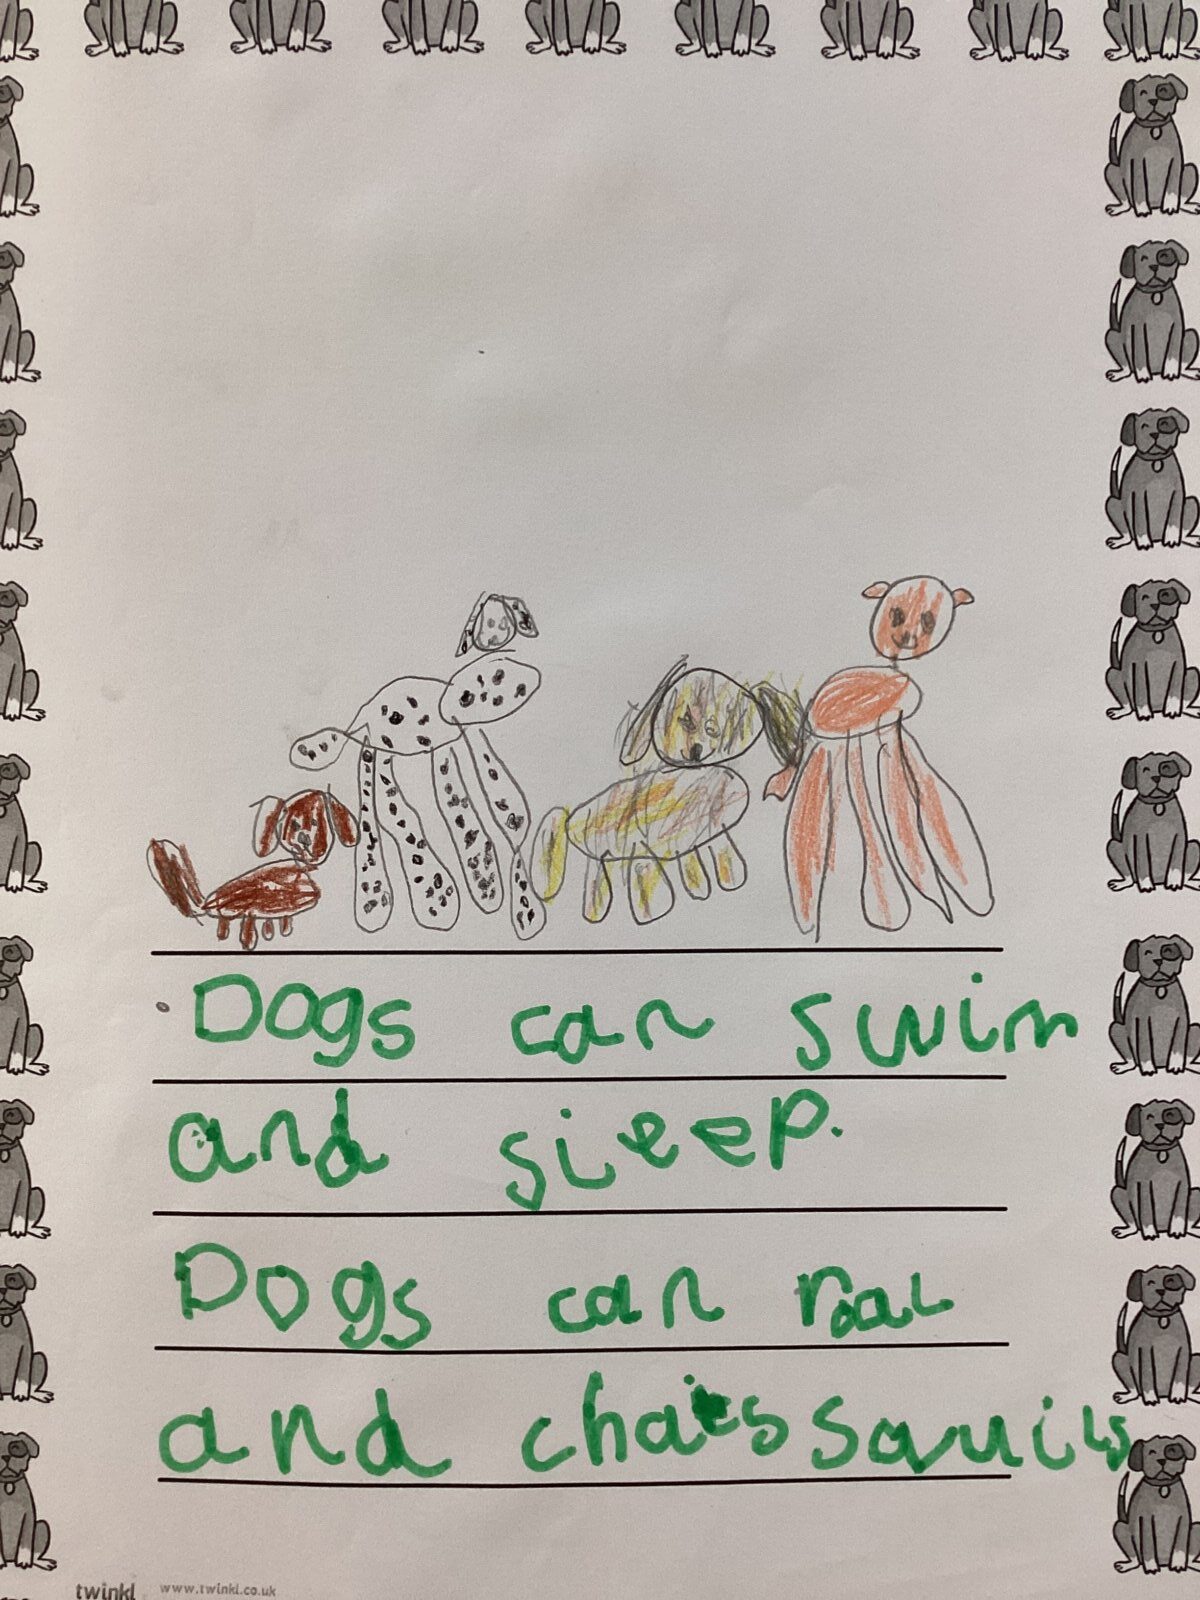 Dogs can swim
and sleep.
Dogs can roar
and chais
twinkl www.twinkl.co.uk